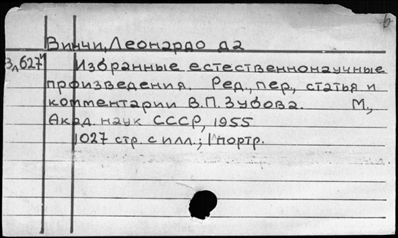 Винчи, Леонардо да
3л627и Избранные естественнонаучные
произведения. Ред., пер., статья и
комментарии В.П. Зубова. М.,
Акад. наук СССР, 1955
1027 стр. с илл.; 1 портр.